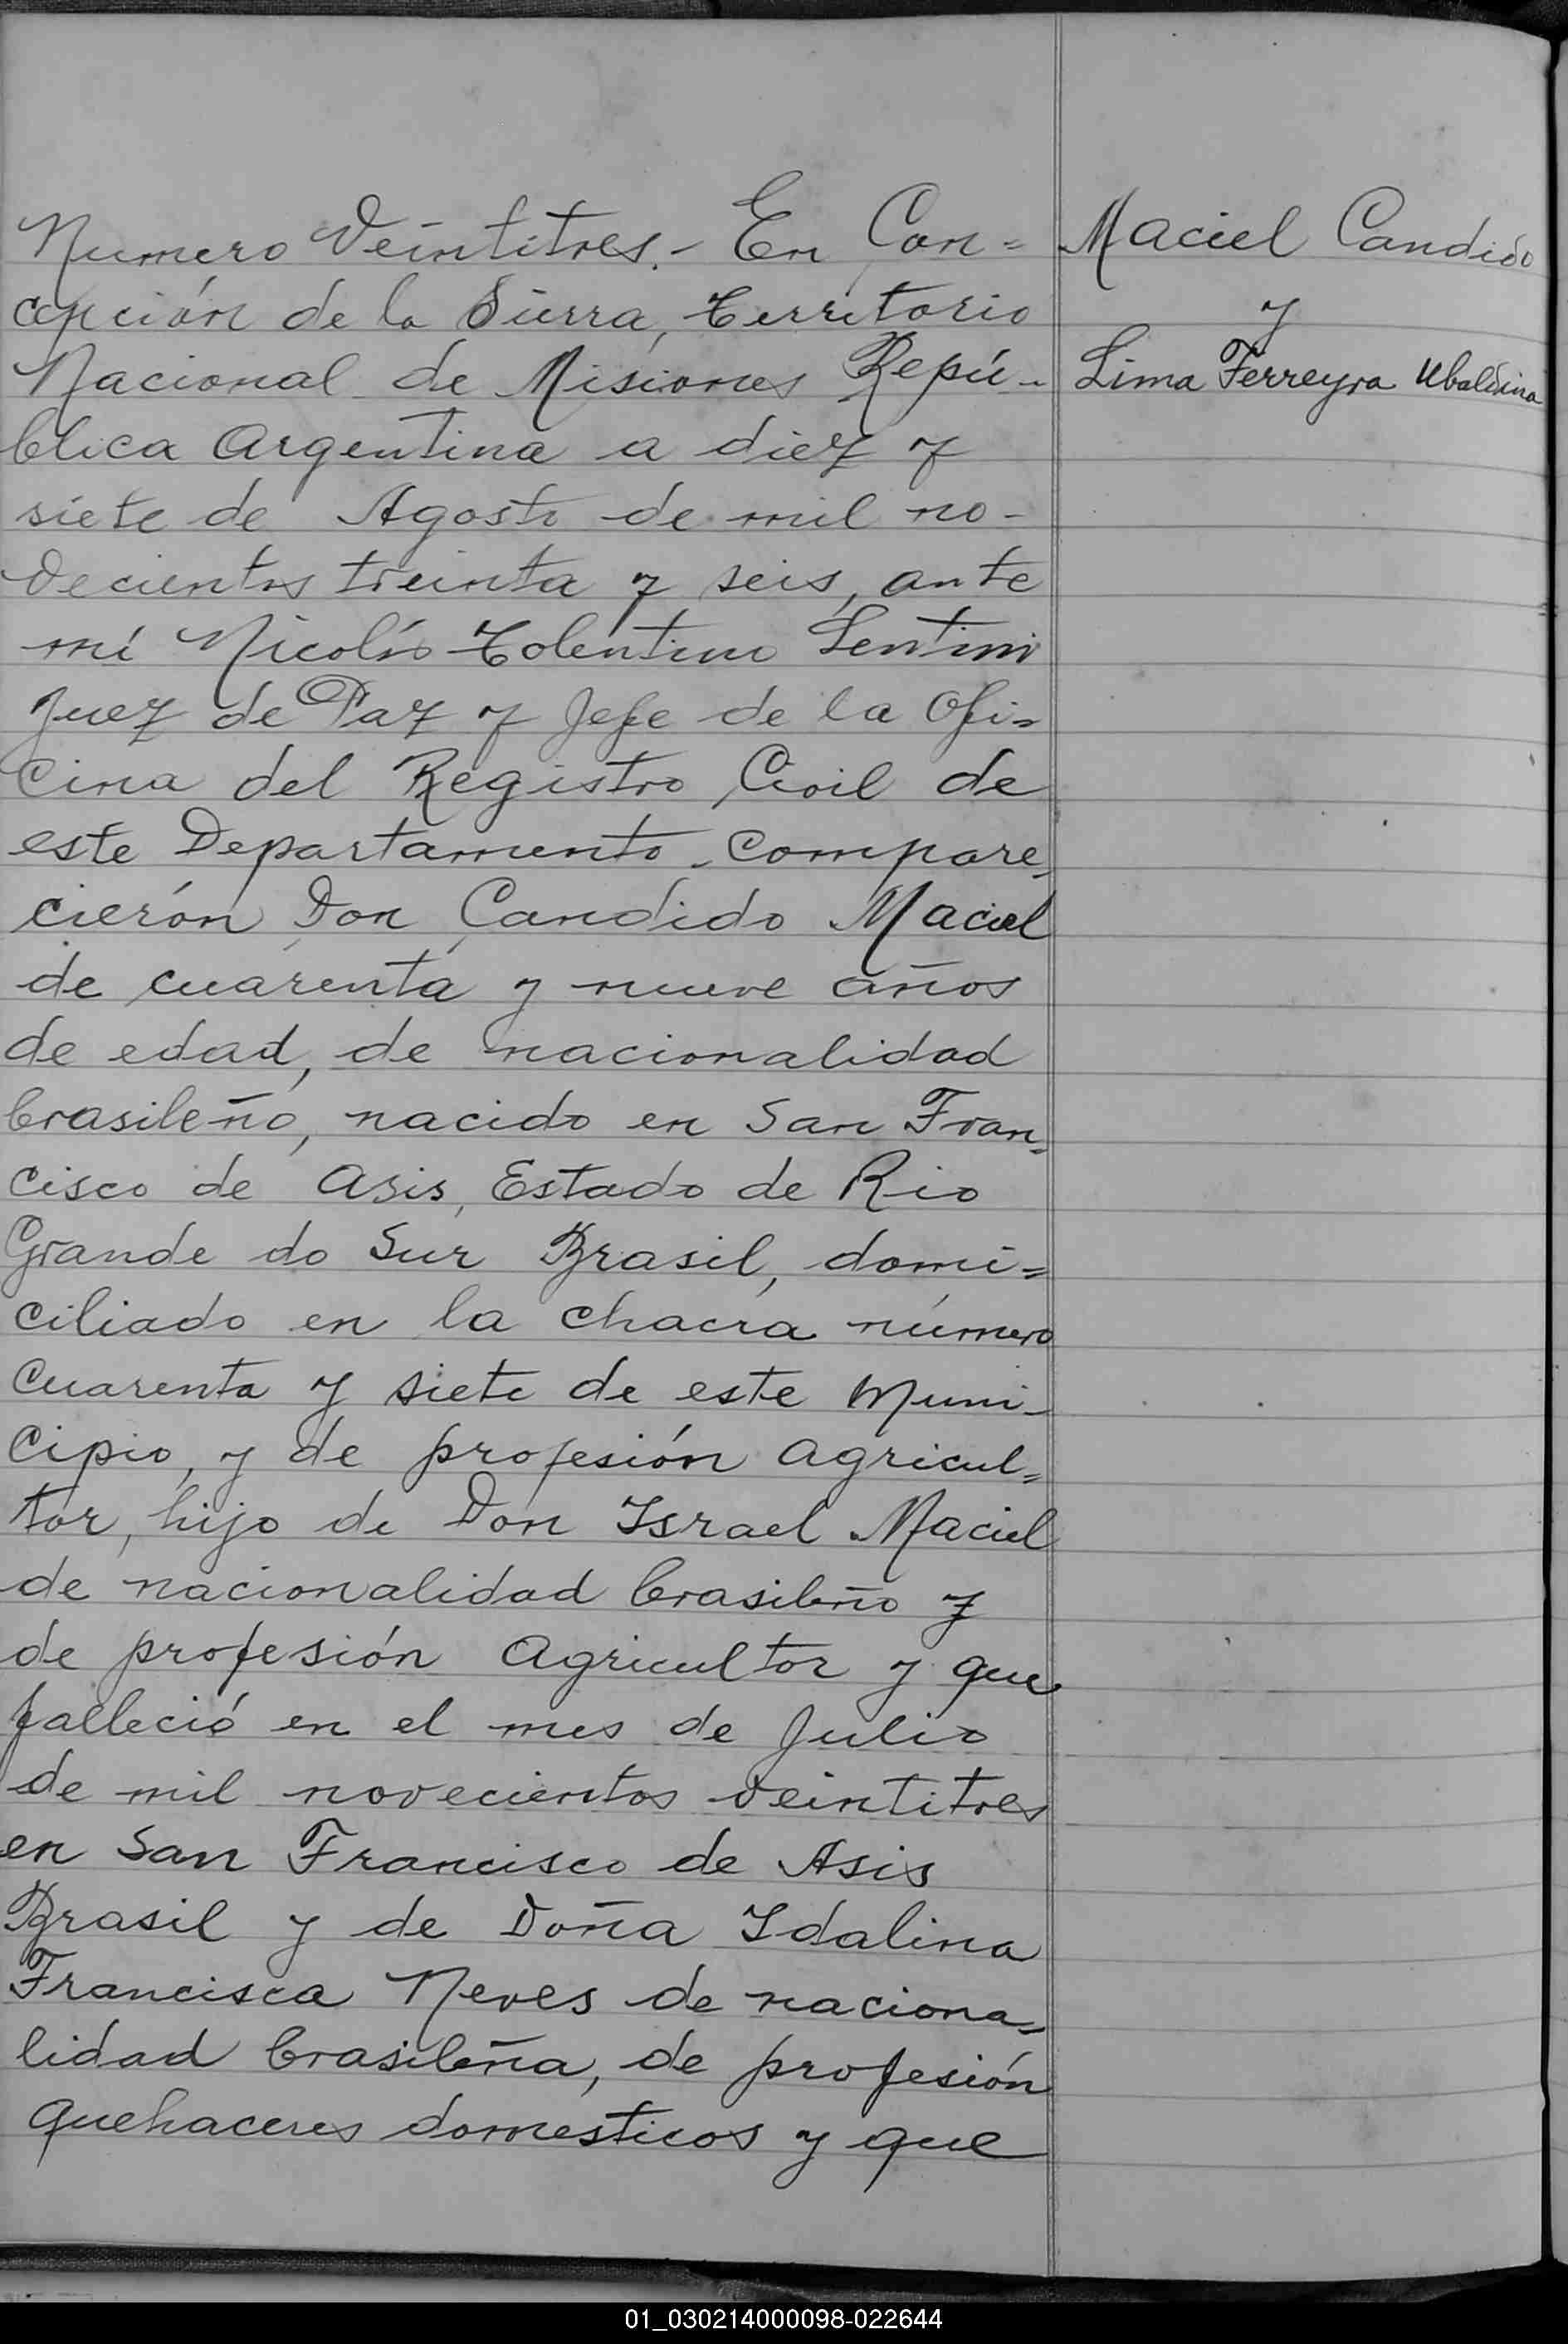 Numero Veintitres.- En Con=
cepción de la Sierra, Territorio
Nacional de Misiones Repú-
blica Argentina a diez y
siete de Agosto de mil no-
vecientos treinta y seis, ante
mí Nicolás Tolentino Sentini
Juez de Paz y Jefe de la Ofi=
cina del Registro Civil de
este Departamento. Compare=
cierón Don Candido Maciel
de cuarenta y nueve años
de edad, de nacionalidad
brasileño, nacido en San Fran=
cisco de Asis, Estado de Rio
Grande do Sur Brasil, domi=
ciliado en la chacra número
cuarenta y siete de este Muni-
cipio, y de profesión agricul=
tor, hijo de Don Israel Maciel
de nacionalidad brasileño y
de profesión Agricultor y que
falleció en el mes de Julio
de mil novecientos veintitres
en San Francisco de Asis
Brasil y de Doña Idalina
Francisca Neves de naciona=
lidad brasileña, de profesión
quehaceres domesticos y que
Maciel Candido
y
Lima Ferreyra Ubaldina
01_030214000098-022644